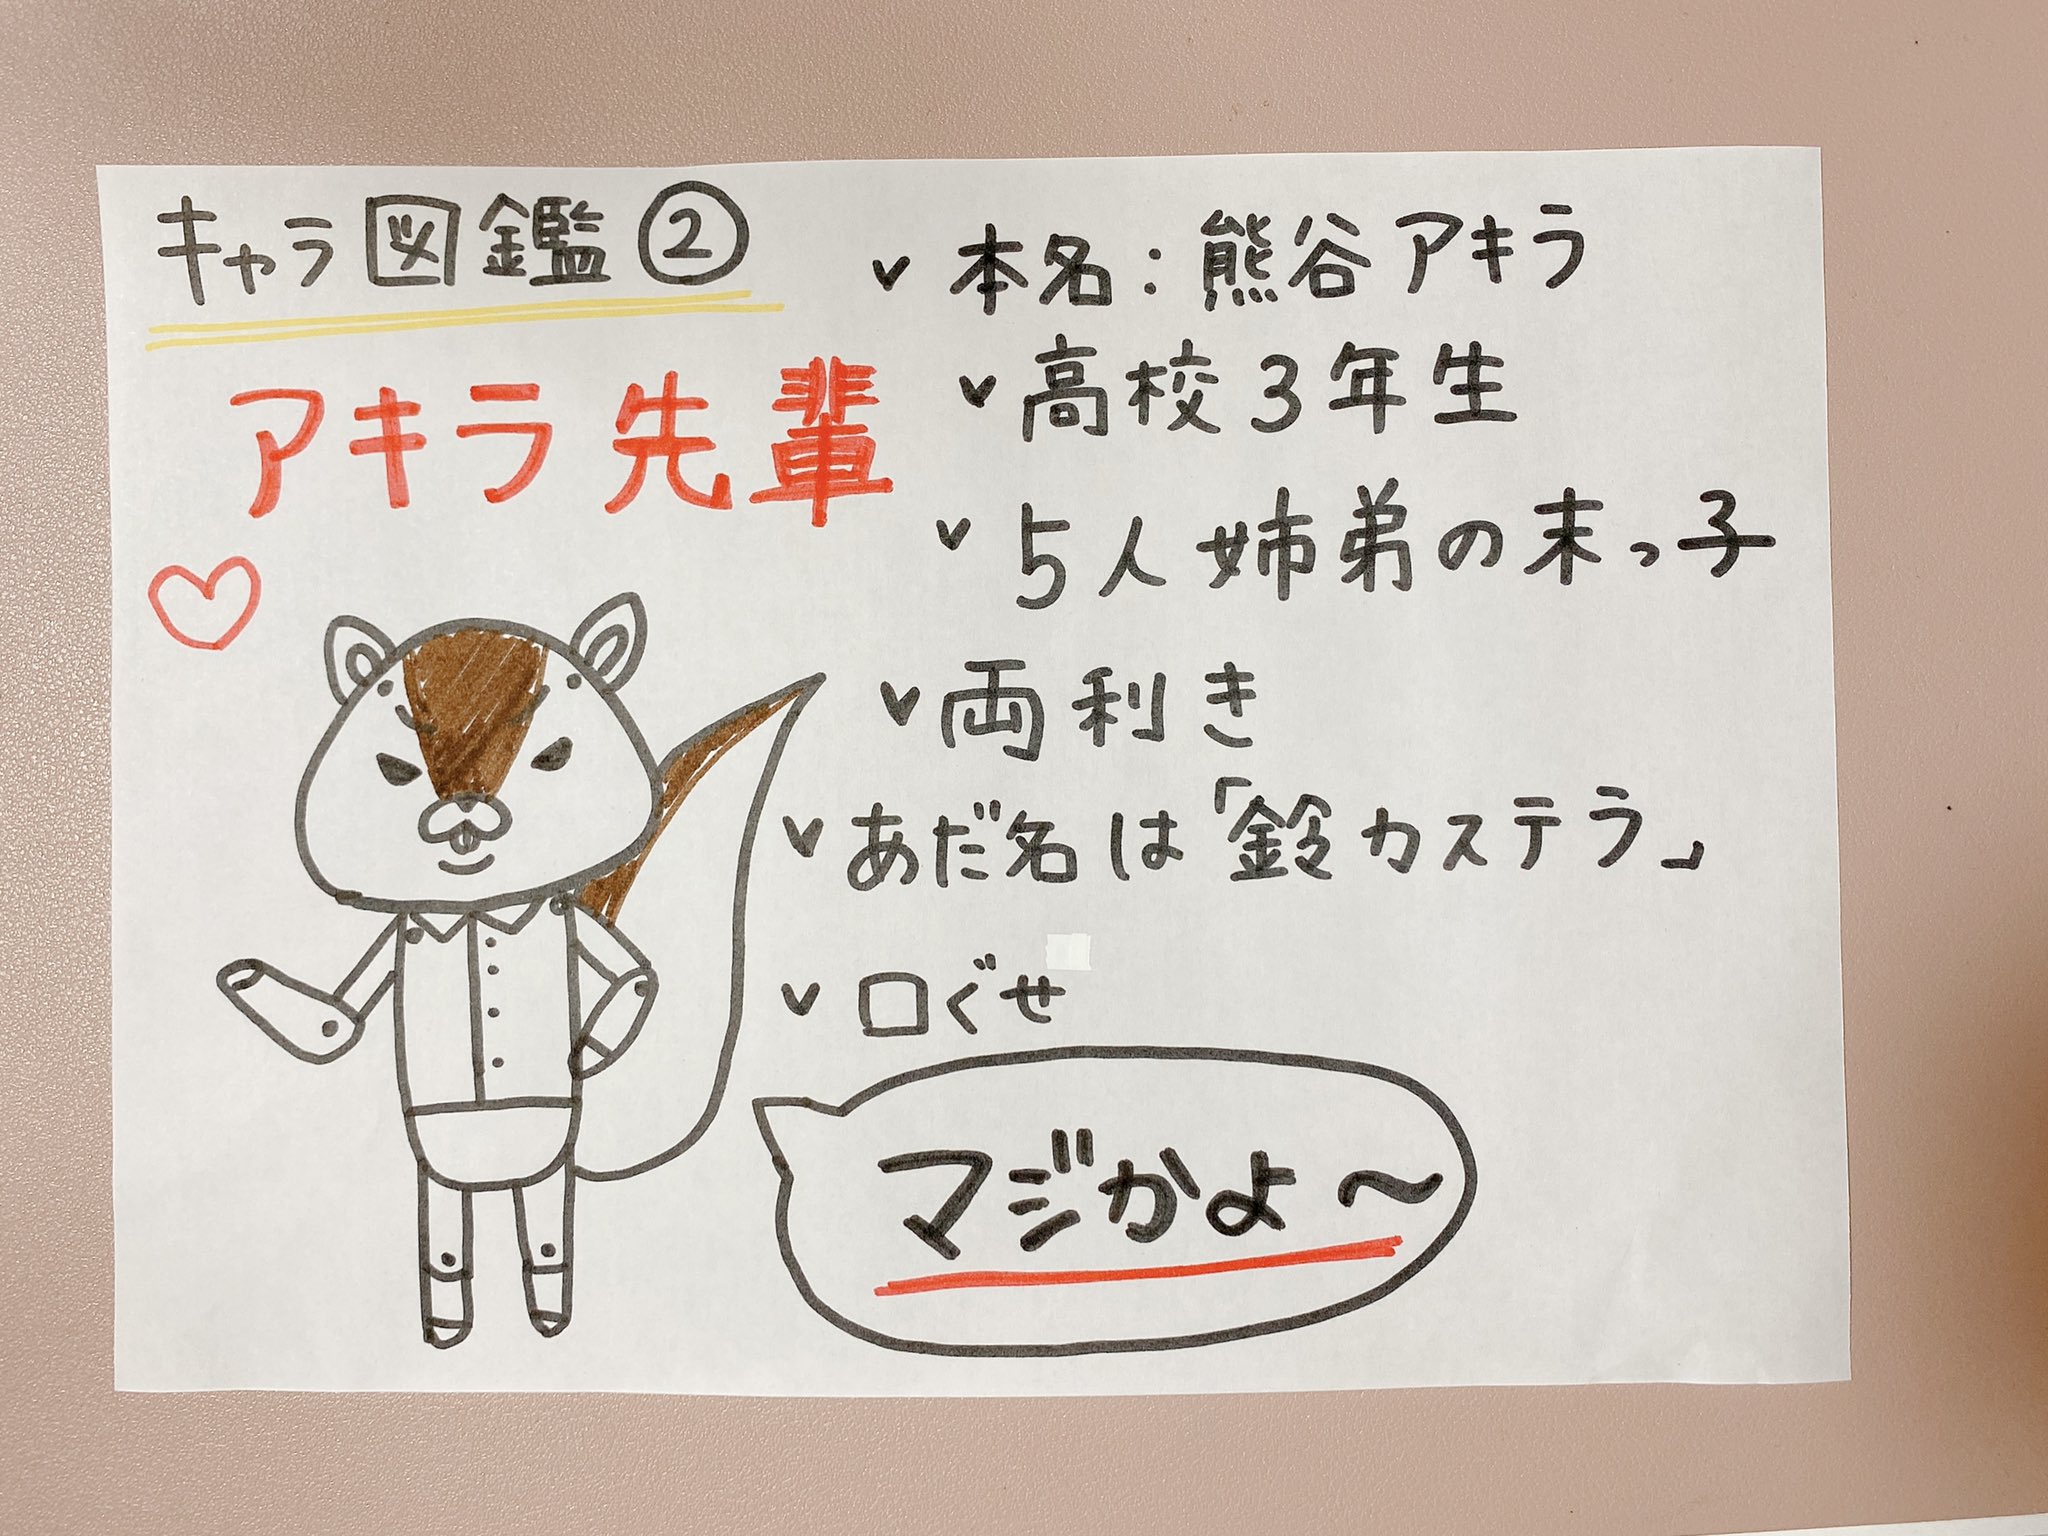 キャラ図鑑②
アキラ先輩
本名:熊谷アキラ
高校3年生
5人姉弟の末っ子
両利き
あだ名は「鈴カステラ」
口ぐせ
マジかよ〜